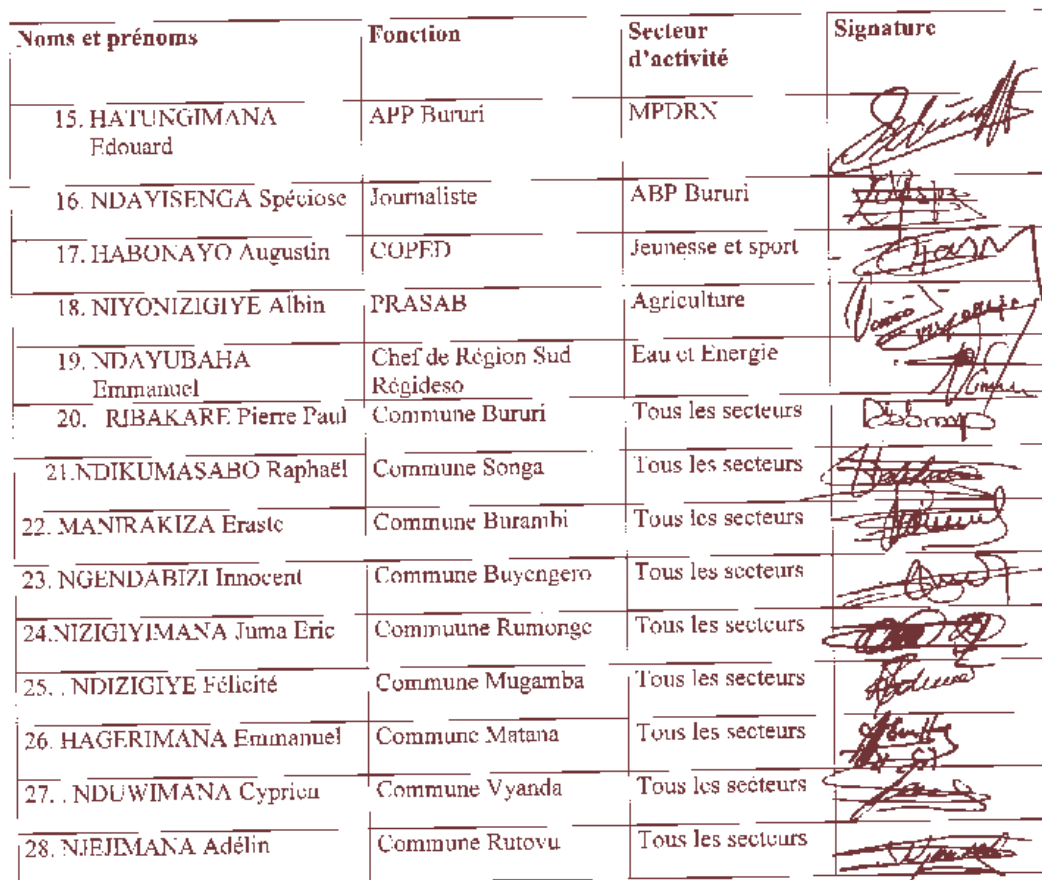 Noms et prénoms Fonction Secteur Signature
d'activité
15. HATUNGIMANA APP Bururi MPDRN
Edouard
16. NDAYISENGA Spéciose Journaliste ABP Bururi
17. HABONAYO Augustin COPED Jeunesse et sport
18. NIYONIZIGIYE Albin PRASAB Agriculture
19. NDAYUBAHA Chef de Région Sud Eau et Energie
Emmanuel Régideso
20. RIBAKARE Pierre Paul Commune Bururi Tous les secteurs
21.NDIKUMASABO Raphaël Commune Songa Tous les secteurs
22. MANIRAKIZA Eraste Commune Burambi Tous les secteurs
23. NGENDABIZI Innocent Commune Buyengero Tous les secteurs
24.NIZIGIYIMANA Juma Eric Commuune Rumonge Tous les secteurs
25. . NDIZIGIYE Félicité Commune Mugamba Tous les secteurs
26. HAGERIMANA Emmanuel Commune Matana Tous les secteurs
27. . NDUWIMANA Cyprien Commune Vyanda Tous les secteurs
28. NJEJIMANA Adélin Commune Rutovu Tous les secteurs